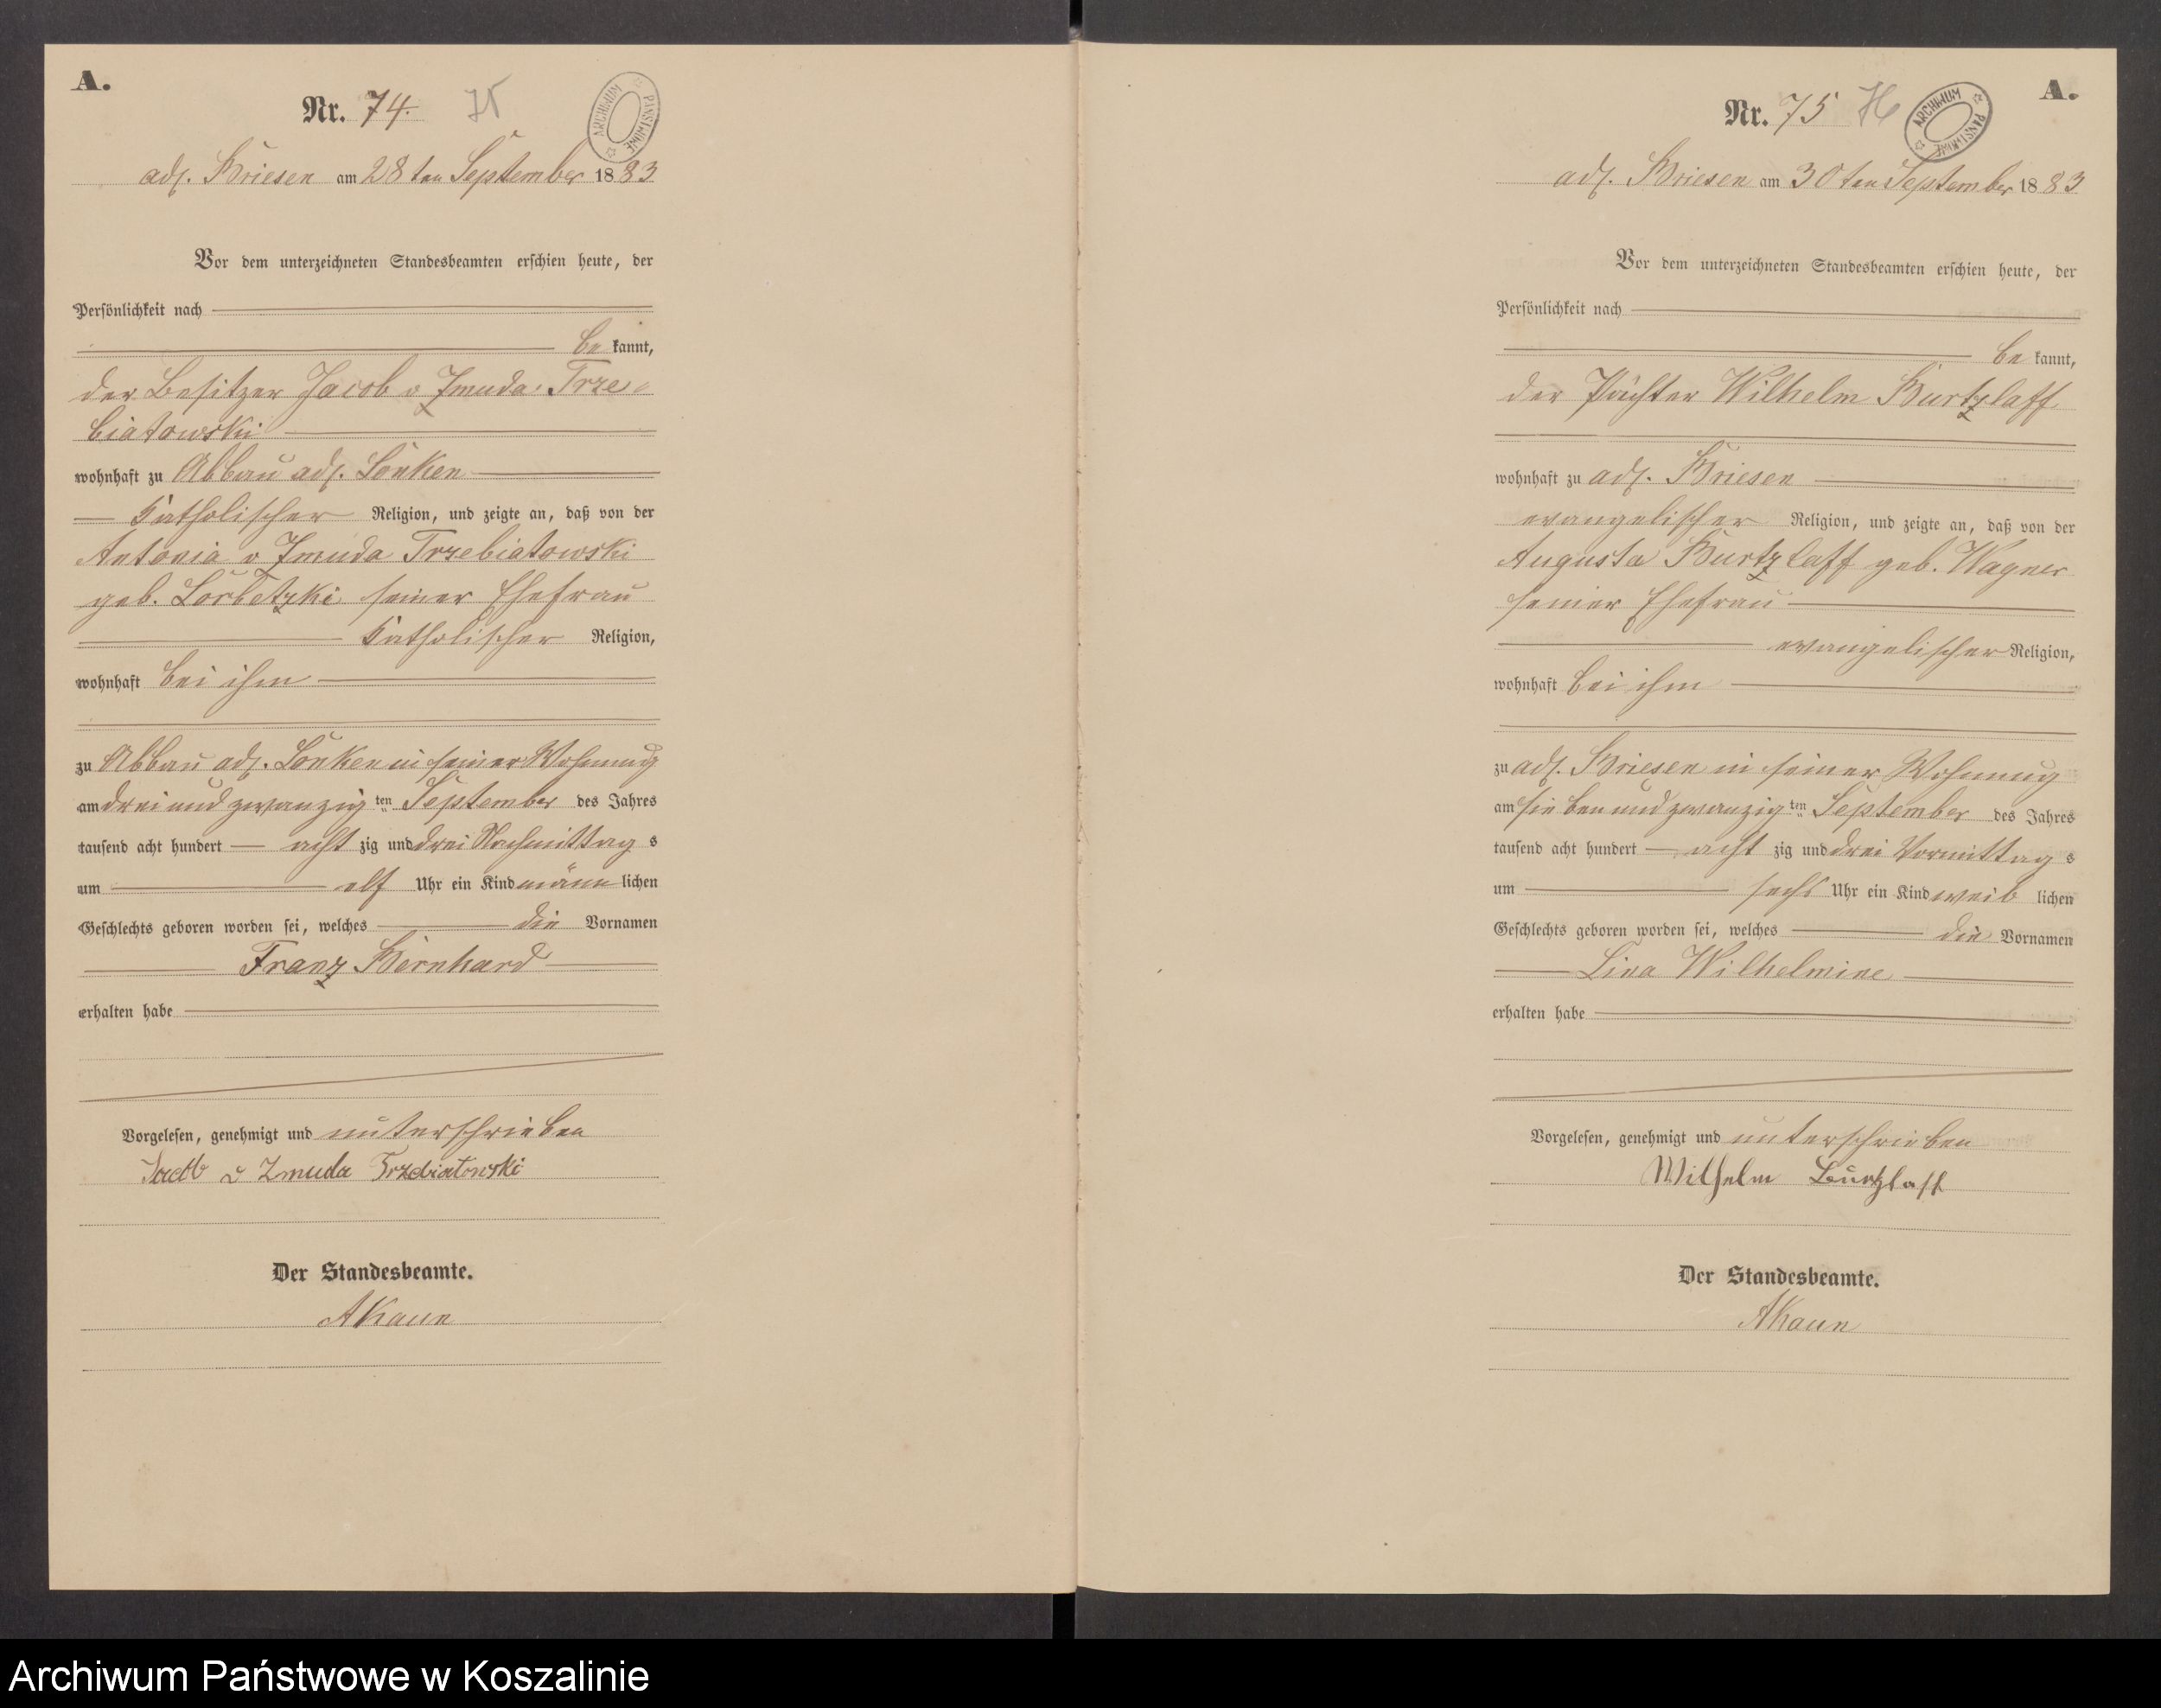 A.
Nr. 74. 75
ARCHIWUM PAŃSTWOWE
adl. Briesen am 28ten September 1883
Vor dem unterzeichneten Standesbeamten erschien heute, der
Persönlichkeit nach
be kannt,
der Besitzer Jacob v Zmuda Trze-
biatowski
wohnhaft zu Abbau adl. Lonken
katholischer Religion, und zeigte an, daß von der
Antonia v Zmuda Trzebiatowski
geb. Lorbetzki seiner Ehefrau
katholischer Religion,
wohnhaft bei ihm
zu Abbau adl. Lonken in seiner Wohnung
am drei und zwanzig ten September des Jahres
tausend acht hundert acht zig und drei Nachmittag s
um elf Uhr ein Kind männ lichen
Geschlechts geboren worden sei, welches die Vornamen
Franz Bernhard
erhalten habe
Vorgelesen, genehmigt und unterschrieben
Jacob v Zmuda Trzebiatowski
Der Standesbeamte.
AKaun
A.
Nr. 75 76
ARCHIWUM PAŃSTWOWE
adl. Briesen am 30ten September 1883
Vor dem unterzeichneten Standesbeamten erschien heute, der
Persönlichkeit nach
be kannt,
der Pächter Wilhelm Burtzlaff
wohnhaft zu adl. Briesen
evangelischer Religion, und zeigte an, daß von der
Augusta Burtzlaff geb. Wagner
seiner Ehefrau
evangelischer Religion,
wohnhaft bei ihm
zu adl. Briesen in seiner Wohnung
am sieben und zwanzig ten September des Jahres
tausend acht hundert acht zig und drei Vormittag s
um sechs Uhr ein Kind weib lichen
Geschlechts geboren worden sei, welches die Vornamen
Lina Wilhelmine
erhalten habe
Vorgelesen, genehmigt und unterschrieben
Wilhelm Burtzlaff
Der Standesbeamte.
AKaun
Archiwum Państwowe w Koszalinie